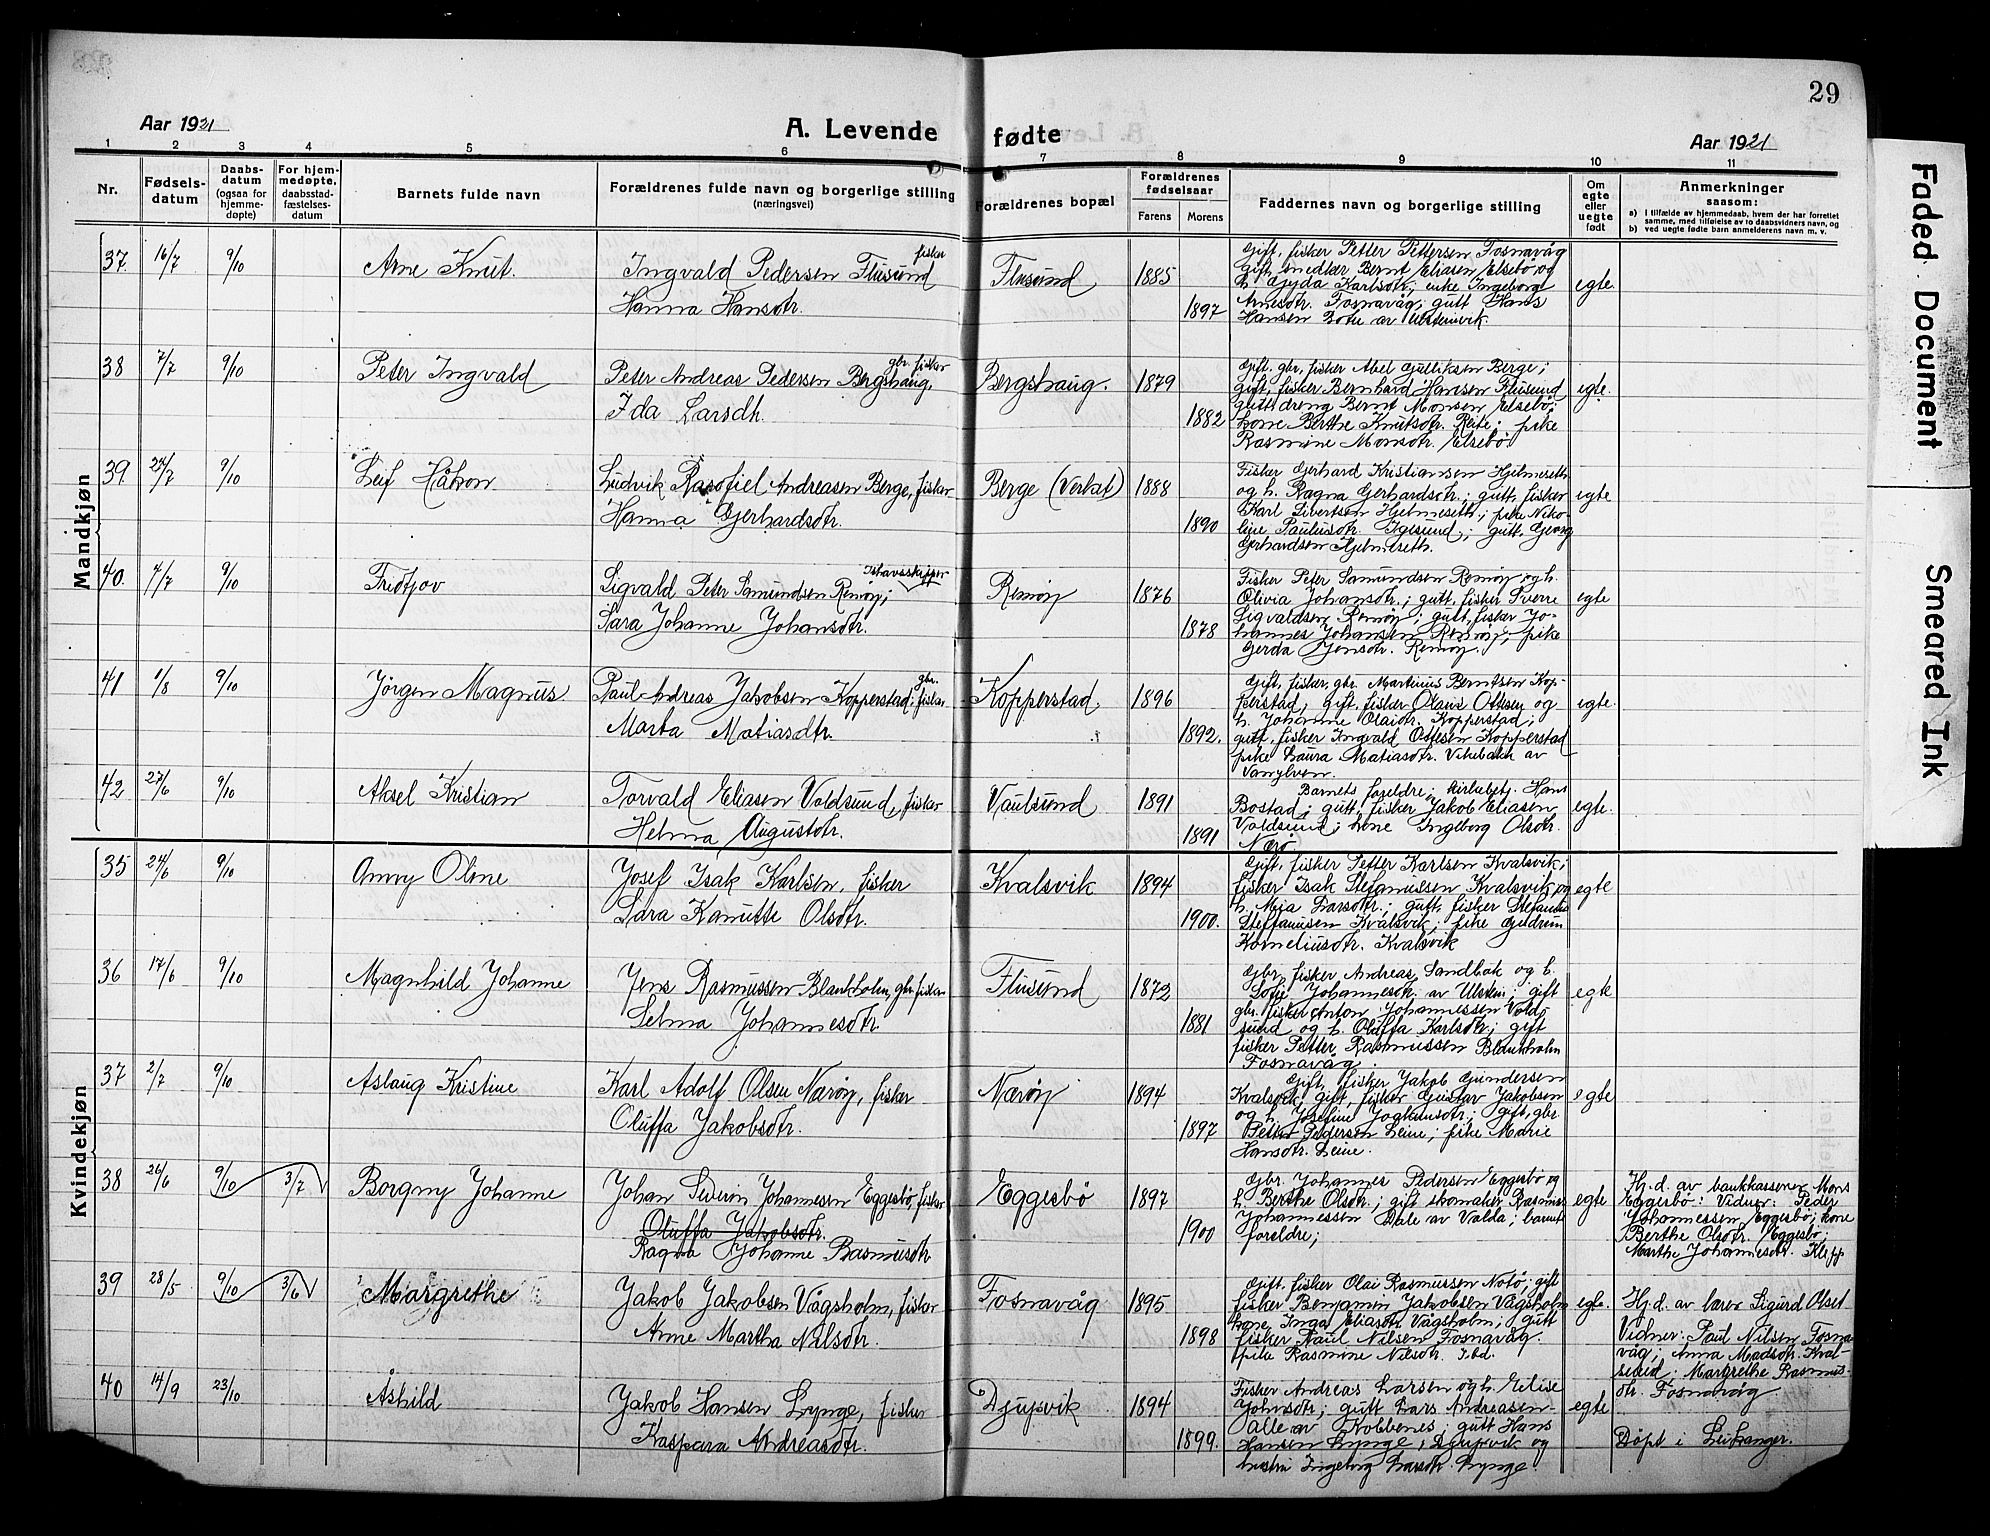 29
Aar 1921
A. Levende fødte
Aar 1921
1 2 3 4 5 6 7 8 9 10 11
Nr.
Fødsels-
datum
Daabs-
datum
(ogsaa for
hjemme-
døpte)
For hjem-
medøpte,
daabsstad-
fæstelses-
datum
Barnets fulde navn
Forældrenes fulde navn og borgerlige stilling
(næringsvei)
Forældrenes bopæl
Forældrenes
fødselsaar
Farens Morens
Faddernes navn og borgerlige stilling
Om
egte
eller
uegte
født
Anmerkninger
saasom:
a) I tilfælde av hjemmedaab, hvem der har forrettet
samme, med tilføielse av to daabsvidners navn, og
b) ved uegte fødte barn anmelderens navn m. v.
Mandkjøn
37. 16/7 9/10 Arne Knut.
Ingvald Pedersen Flusund fisker
Hanna Hansdtr.
Flusund 1885 1897
Gift, fisker Petter Pettersen Fosnavåg
gift, snedker Bernt Eliasen Elsebö og
h. Gyda Karlsdtr; enke Ingeborg
Arnesdtr. Fosnavåg; gutt Hans
Hansen Botn av Ulsteinvik.
egte.
38 7/7 9/10 Peter Ingvald
Peter Andreas Pedersen Bergshaug, gbr. fisker
Ida Larsdtr.
Bergshaug. 1879 1882
Gift. gbr. fisker Abel Gulliksen Berge;
gift, fisker Bernhard Hansen Flusund
gutt dreng Bernt Monsen Elsebö;
kone Berthe Knutsdtr. Reite; pike
Rasmine Monsdtr. Elsebö
egte.
39. 24/7 9/10 Leif Håkon
Ludvik Rasofiel Andreasen Berge, fisker
Hanna Gerhardsdtr.
Berge (Verket) 1888 1890
Fisker Gerhard Kristiansen Hjelmeseth
og h. Ragna Gerhardsdtr.; gutt, fisker
Karl Sivertsen Hjelmeseth; pike Niko-
line Paulusdtr. Igesund; gutt, Georg
Gerhardsen Hjelmeseth.
egte
40. 4/7 9/10 Fridtjov
Sigvald Peter Samundsen Remøy; Ishavsskipper
Sara Johanne Johansdtr.
Remøy 1876 1878
Fisker Peter Samundsen Remøy og h.
Olivia Johansdtr.; gutt, fisker Sverre
Sigvaldsen Remøy; gutt, fisker Jo-
hannes Johansen Remøy; pike
Gerda Jensdtr. Remøy.
egte
41 1/8 9/10 Jörgen Magnus
Paul Andreas Jakobsen Kopperstad; gbr. fisker
Marta Matiasdtr.
Kopperstad. 1896 1892.
Gift, fisker, gbr. Martinus Berntsen Kop-
perstad; gift, fisker Olaus Ottesen og
h. Johanne Olaidtr. Kopperstad;
gutt, fisker Ingvald Ottesen Kopperstad
pike Laura Matiasdtr. Vikebakk av
Vanylven.
egte.
42 27/6 9/10 Aksel Kristian
Torvald Eliasen Voldsund, fisker
Helma Augustdtr.
Vaulsund 1891 1891
Barnets foreldre; kirkebetj. Hans
Bostad; gutt, fisker Jakob Eliasen
Voldsund; kone Ingeborg Olsdtr.
Nærö
egte.
Kvindekjøn
35 24/6 9/10 Anny Oline
Josef Isak Karlsen, fisker
Sara Kanutte Olsdtr.
Kvalsvik 1894 1900.
Gift, fisker Petter Karlsen Kvalsvik;
fisker Isak Stefanussen Kvalsvik og
h. Mia Larsdtr.; gutt, fisker Stefanus
Steffanussen Kvalsvik; pike Gudrun
Korneliusdtr. Kvalsvik
egte
36 17/6 9/10 Magnhild Johanne
Jens Rasmussen Blankholm, gbr. fisker
Selma Johannesdtr.
Flusund 1872 1881
Gbr. fisker Andreas Sandbak og h.
Sofie Johannesdtr. av Ulstein; gift
gbr. fisker Anton Johannessen Vold-
sund og h. Oluffa Karlsdtr; gift
fisker Petter Rasmussen Blankholm
Fosnavåg.
egte
37 2/7 9/10 Aslaug Kristine
Karl Adolf Olsen Nærøy, fisker
Oluffa Jakobsdtr.
Nærøy 1894 1897
Gift, fisker Jakob Gundersen
Kvalsvik; gift, fisker Gustav Jakobsen
og h. Josefine Joakimsdtr.; gift, gbr
Petter Pedersen Leine; pike Marie
Hansdtr. Leine.
egte
38 26/6 9/10 3/7 Borgny Johanne
Johan Severin Johannesen Eggesbö, fisker
Oluffa Jakobsdtr.
Ragna Johanne Rasmusdtr
Eggesbö 1897 1900
Gbr. Johannes Pedersen Eggesbö og
h. Berthe Olsdtr.; gift skomaker Rasmus
Johannessen Dale av Volda; barnets
foreldre;
egte
Hj.d. av bankkasserer Mons
Eggesbö: Vidner: Peder
Johannessen Eggesbö; kone
Berthe Olsdtr. Eggesbö;
Marthe Johannesdtr. Klepp
39 28/5 9/10 3/6 Margrethe
Jakob Jakobsen Vågsholm, fisker
Anne Martha Nilsdtr.
Fosnavåg 1895 1898
Gift, fisker Olai Rasmussen Notö; gift
fisker Benjamin Jakobsen Vågsholm
kone Inga Eliasdtr. Vågsholm; gutt
fisker Paul Nilsen Fosnavåg.
pike Rasmine Nilsdtr. Ibd.
egte.
Hj.d. av lærer Sigurd Olset
Vidner: Paul Nilsen Fosna-
våg; Anna Madsdtr. Kval-
sund; Margrethe Rasmus-
dtr. Fosnavåg
40 14/9 23/10 Åshild
Jakob Hansen Lynge, fisker
Kaspara Andreasdtr.
Djupvik 1894 1899.
Fisker Andreas Larsen og h. Elise
Johnsdtr; gutt Lars Andreasen
alle av Kobbenes; gutt Hans
Hansen Lynge, Djupvik og
hustru Ingeborg Larsdtr. Lynge.
egte
Döpt i Leikanger.
Faded Document
Smeared Ink